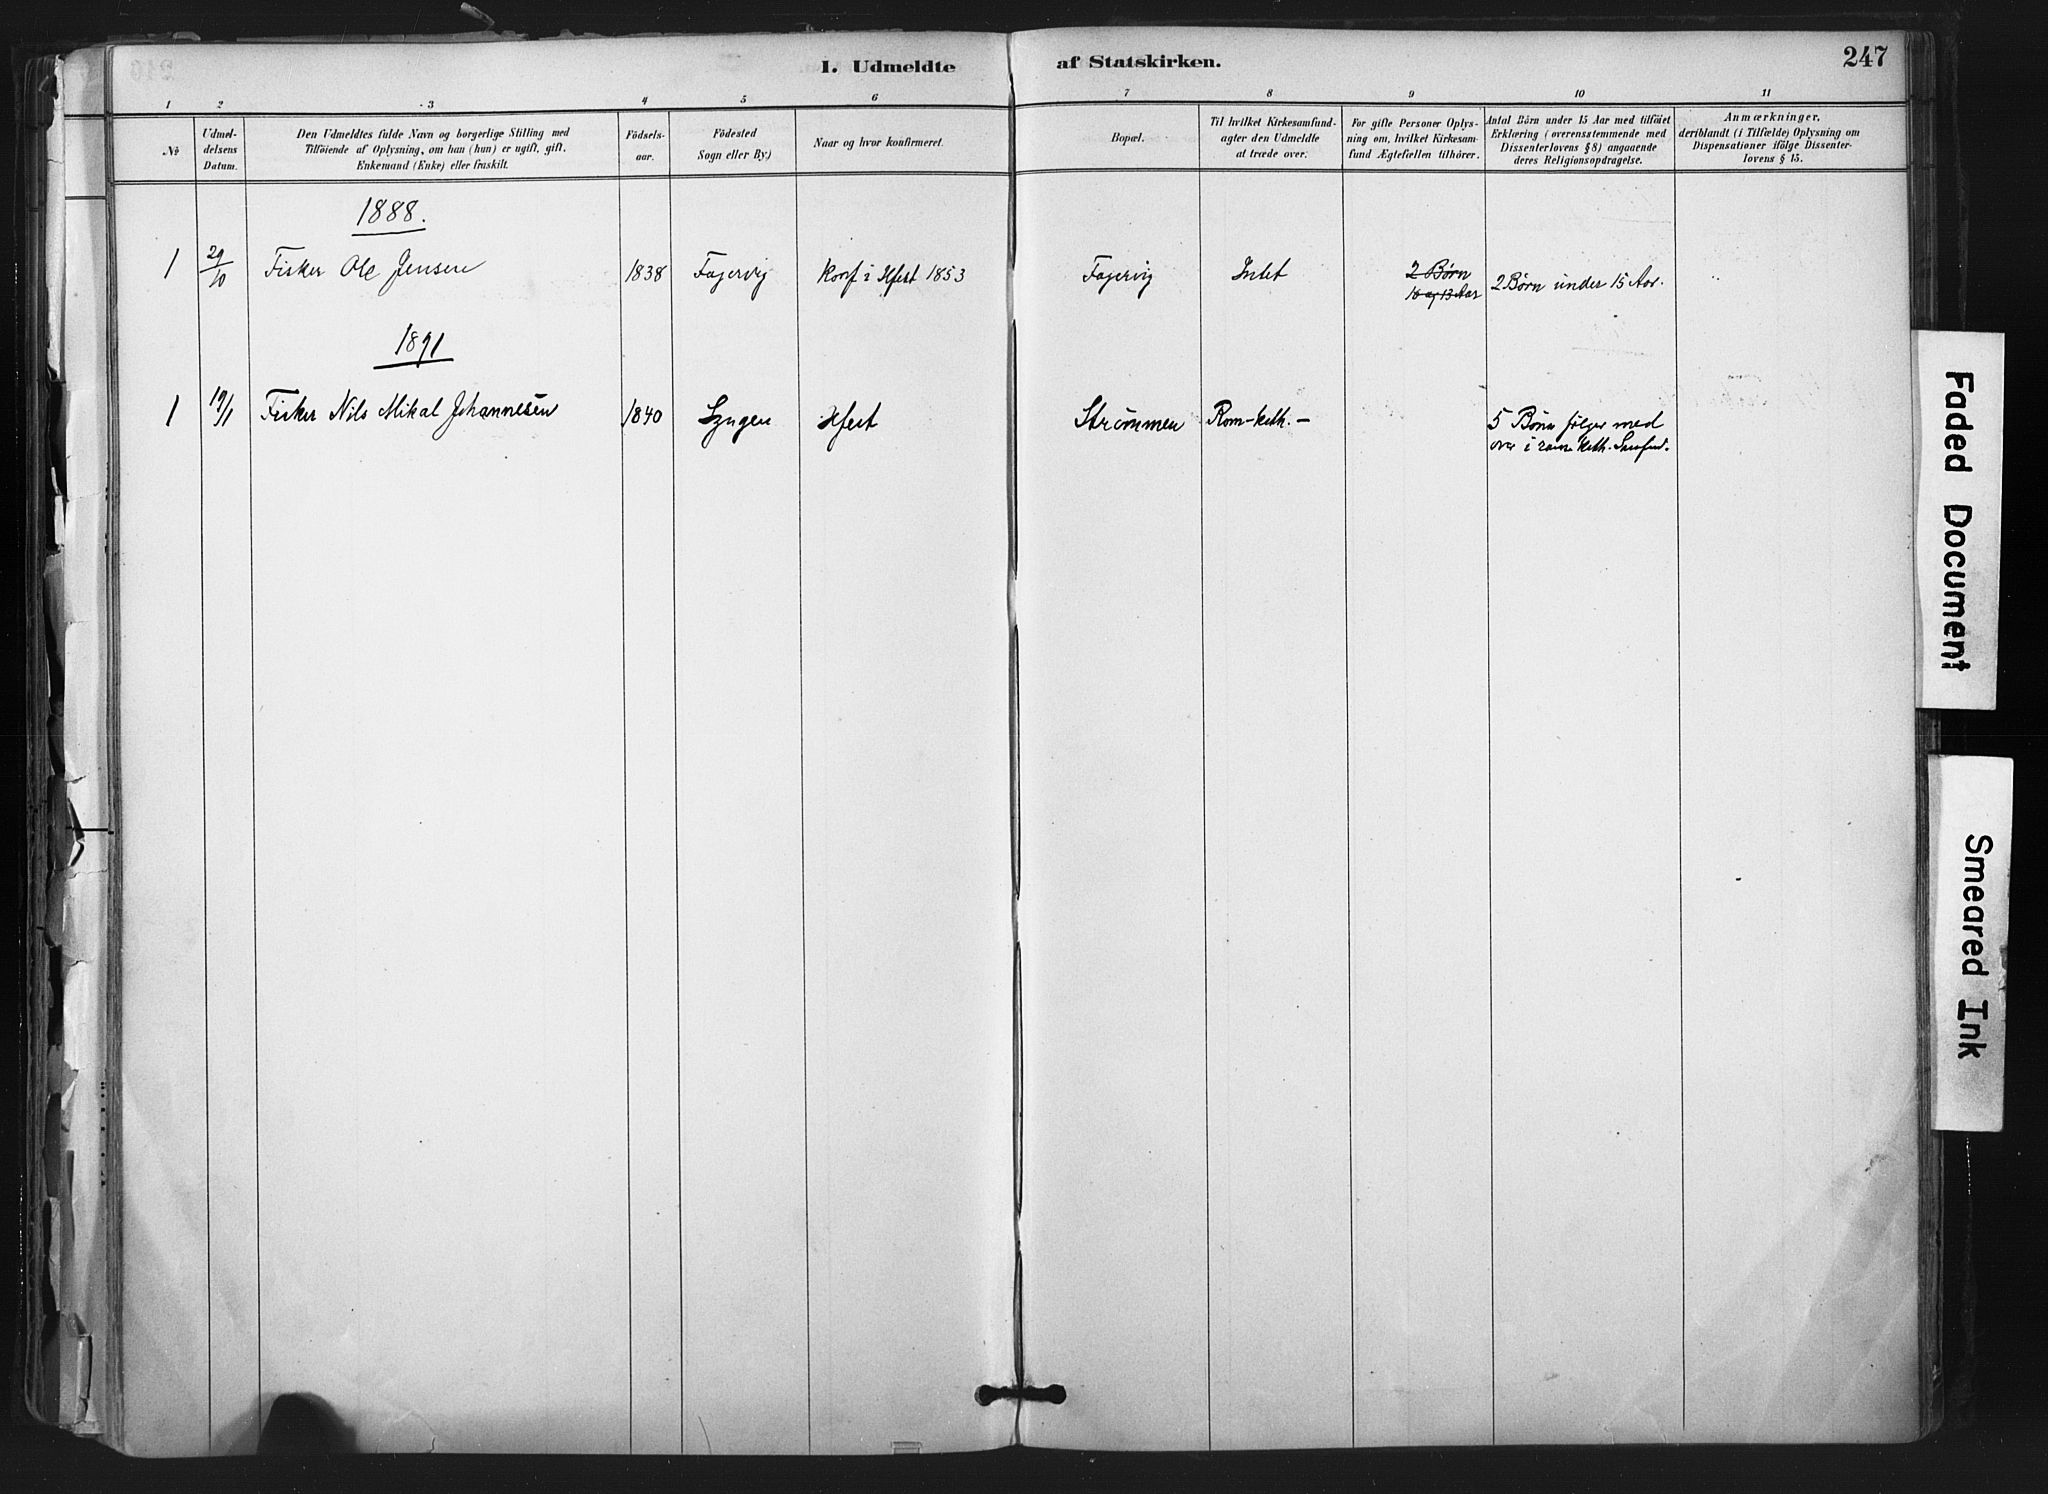 I. Udmeldte af Statskirken.
247
1 2 3 4 5 6 7 8 9 10 11
No
Udmel-
delsens
Datum.
Den Udmeldtes fulde Navn og borgerlige Stilling med
Tilføiende af Oplysning, om han (hun) er ugift, gift,
Enkemand (Enke) eller fraskilt.
Fødsels-
aar.
Fødested
Sogn eller By.)
Naar og hvor konfirmeret.
Bopæl.
Til hvilket Kirkesamfund-
agter den Udmeldte
at træde over.
For gifte Personer Oplys-
ning om, hvilket Kirkesam-
fund Ægtefællen tilhører.
Antal Børn under 15 Aar med tilføiet
Erklæring (overensstemmende med
Dissenterlovens § 8) angaaende
deres Religionsopdragelse.
Anmærkninger,
deriblandt (i Tilfælde) Oplysning om
Dispensationer ifølge Dissenter-
lovens § 15.
1888.
1 29/10 Fisker Ole Jensen 1838 Fagervig Konf i Hfest 1853 Fagervig Intet 2 Børn 2 Børn under 15 Aar.
16 og 13 Aar
1891
1 19/1 Fisker Nils Mikal Johannesen 1840 Lyngen Hfest Strømmen Rom-kath. - 5 Børn følger med
over i kath. Samfud.
Faded Document
Smeared Ink